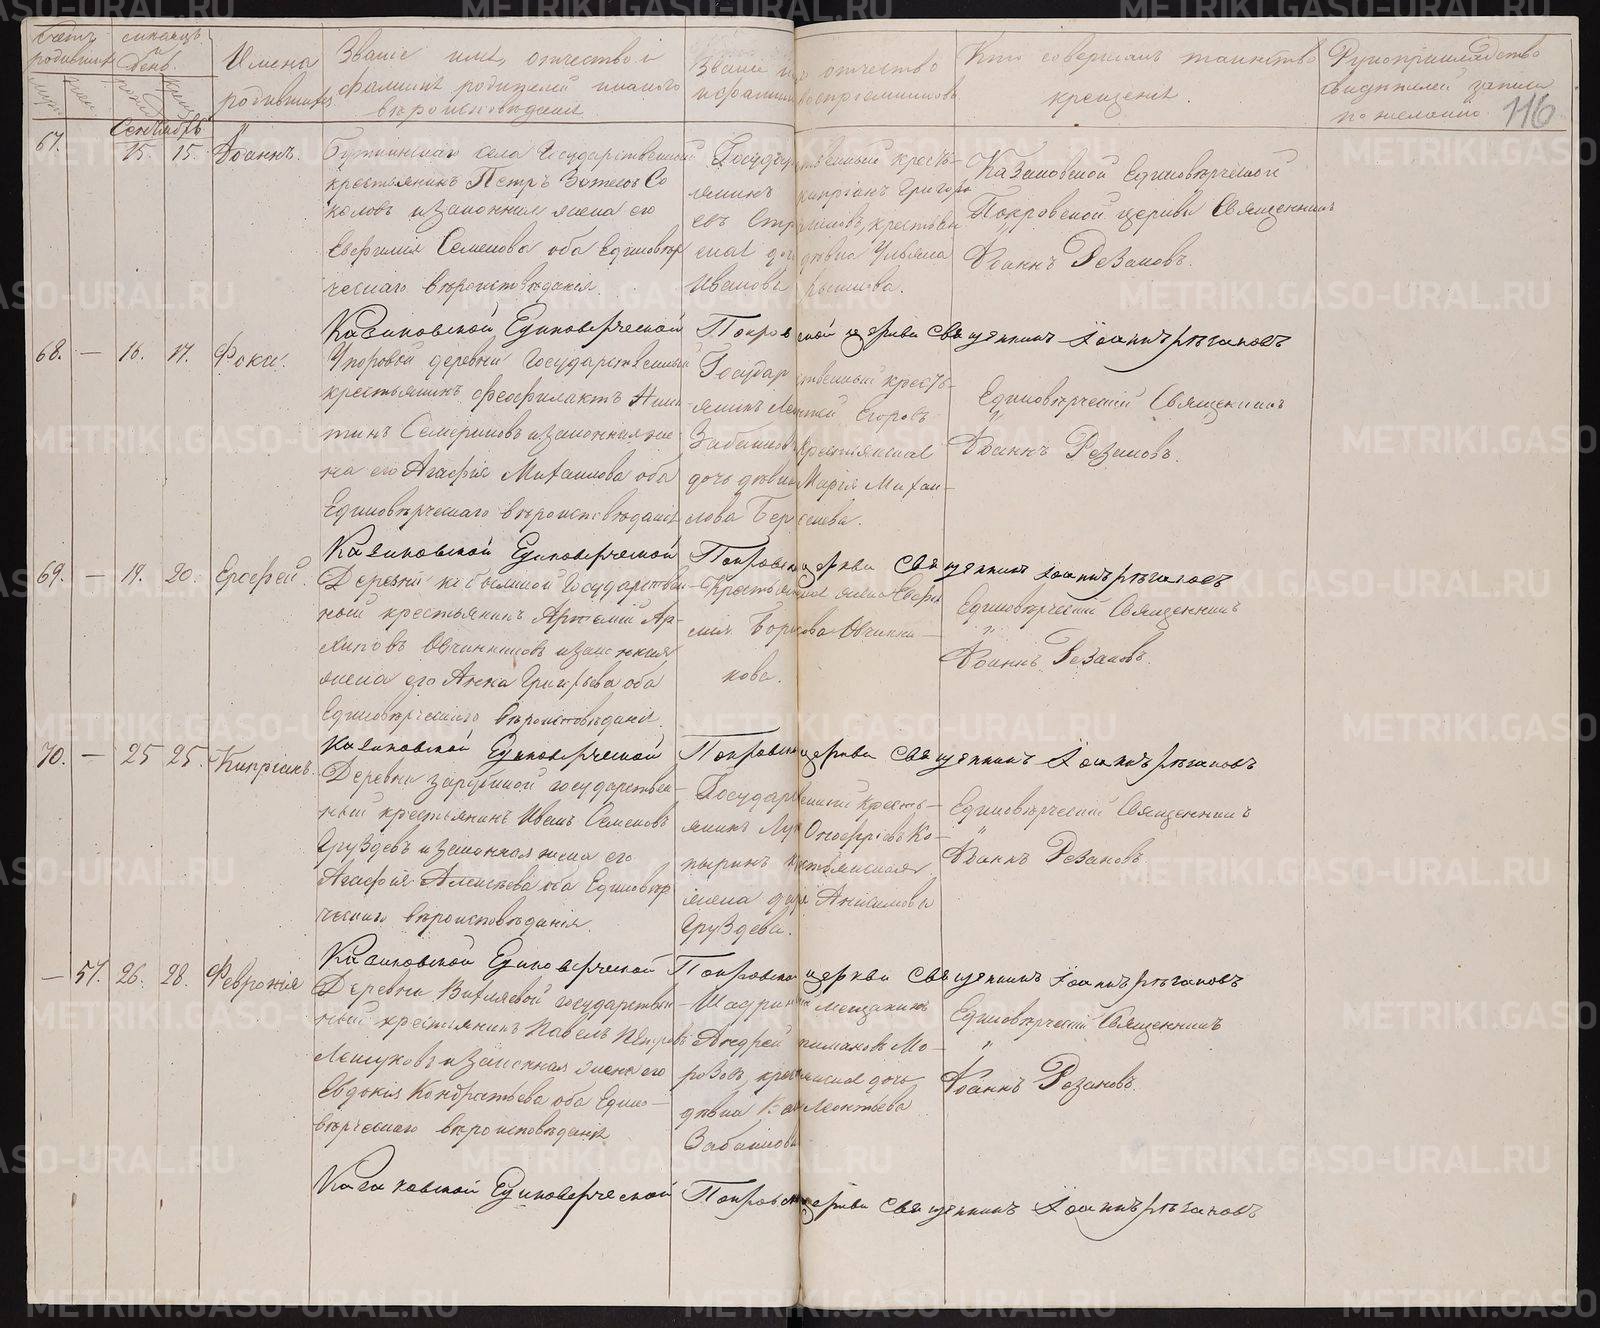 Счетъ родившихся
мѣсяцъ и день.
Имена родившихся
Званіе имя, отчество и
фамилія родителей и какого
вѣроисповѣданія
Званіе имя отчество
и фамилія воспріемниковъ
Кто совершалъ таинство
крещенія.
Рукоприкладство
свидѣтелей записи
по желанію.
116
Сентябрь
67. 15. 15. Іоаннъ.
села Государственный
крестьянинъ Петръ Со
коловъ и законная жена его
Семенова оба Единовѣр
ческаго вѣроисповѣданія.
Государственный кресть-
янинъ Кипріанъ Григорь
евъ
дѣвица Ульяна
Иванова
Казаковской Единовѣрческой
Покровской церкви Священникъ
Іоаннъ Резановъ.
Казаковской Единоверческой Покровской церкви священникъ Іоаннъ Резановъ
68. — 16. 17. Фока.
деревни Государственный
крестьянинъ Феофилактъ Ники-
тинъ и законная же-
на его Агафія Михаилова оба
Единовѣрческаго вѣроисповѣданія
Государственный кресть-
янинъ Егоровъ
Крестьянская
дочь дѣвица Марія Михаи-
лова Берсенева.
Единовѣрческій Священникъ
Іоаннъ Резановъ.
Казаковской Единоверческой Покровской церкви священникъ Іоаннъ Резановъ
69. — 19. 20. Ерофей.
Деревни Государствен-
ный крестьянинъ Артемій Ар-
хиповъ Овчинниковъ и законная
жена его Анна Григорьева оба
Единовѣрческаго вѣроисповѣданія.
Крестьянская жена
Борисова Овчинни-
кова.
Единовѣрческій Священникъ
Іоаннъ Резановъ.
Казаковской Единоверческой Покровской церкви священникъ Іоаннъ Резановъ
70. — 25 25. Кипріанъ.
Деревни государствен-
ный крестьянинъ Иванъ Семеновъ
Груздевъ и законная жена его
Агафія Алексѣева оба Единовѣр
ческаго вѣроисповѣданія.
Государственный кресть-
янинъ Онофріевъ Ко-
пыринъ крестьянская
жена Дарья Анисимова
Груздева.
Единовѣрческій Священникъ
Іоаннъ Резановъ.
Казаковской Единоверческой Покровской церкви священникъ Іоаннъ Резановъ
— 57. 26. 28. Февронія
Деревни государствен
ный крестьянинъ Павелъ Петровъ
и законная жена его
Евдокія Кондратьева оба Едино-
вѣрческаго вѣроисповѣданія
Шадринскій мещанинъ
Андрей Мо-
розовъ, крестьянская дочь
дѣвица Леонтьева
Забанкова
Единовѣрческій Священникъ
Іоаннъ Резановъ.
Казаковской Единоверческой Покровской церкви священникъ Іоаннъ Резановъ
METRIKI.GASO-URAL.RU